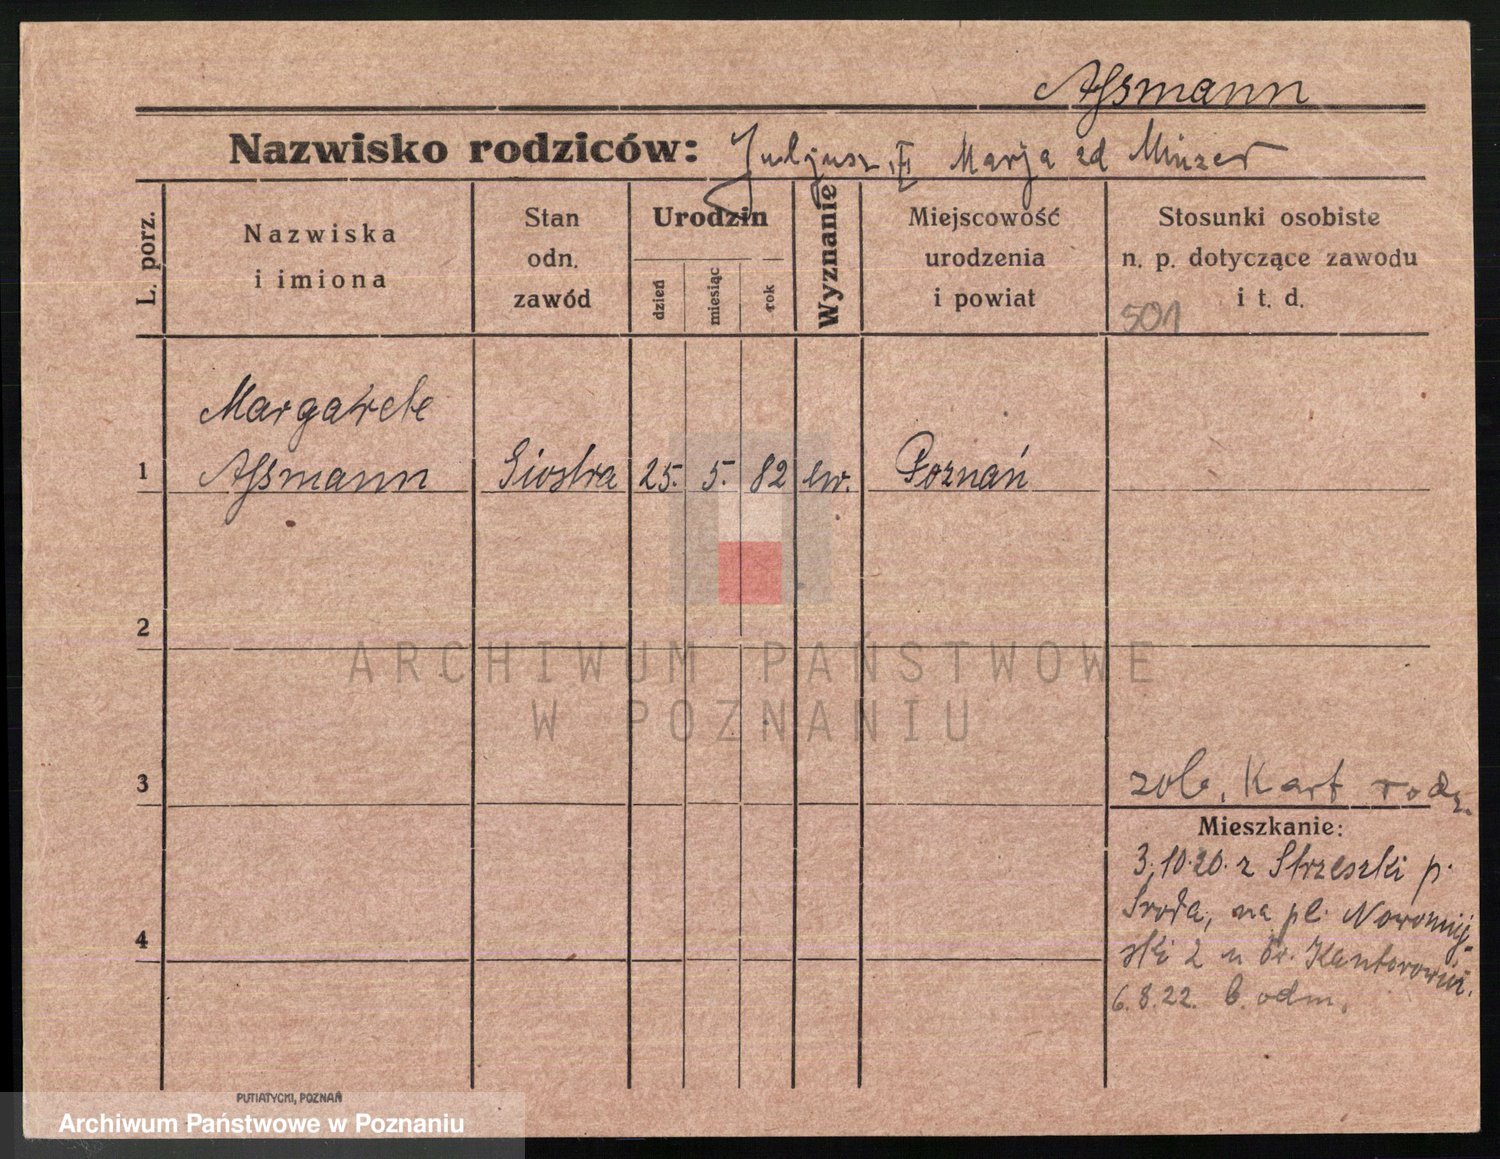 Assmann
Nazwisko rodziców: Juljusz, II Marja zd Minzer
L. porz.
Nazwiska
i imiona
Stan
odn.
zawód
Urodzin
dzień
miesiąc
rok
Wyznanie
Miejscowość
urodzenia
i powiat
Stosunki osobiste
n. p. dotyczące zawodu
i t. d.
501
Margarete
1 Assmann Siostra 25. 5. 82 ew. Poznań
2
ARCHIWUM PAŃSTWOWE
W POZNANIU
3
zob. Kart rodz.
Mieszkanie:
3.10.20. z Strzeszki p.
Środa, na pl. Nowomiej-
4
ski 2 u dr. Kantorowicz.
6.8.22. b. odm.
PUTIATYCKI, POZNAŃ
Archiwum Państwowe w Poznaniu